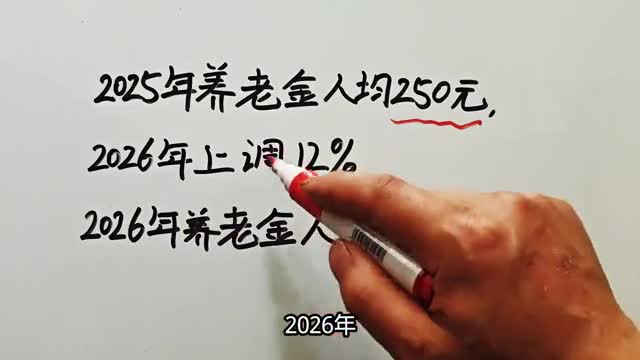 2025年养老金人均250元,
2026年上调12%
2026年养老金人
2026年